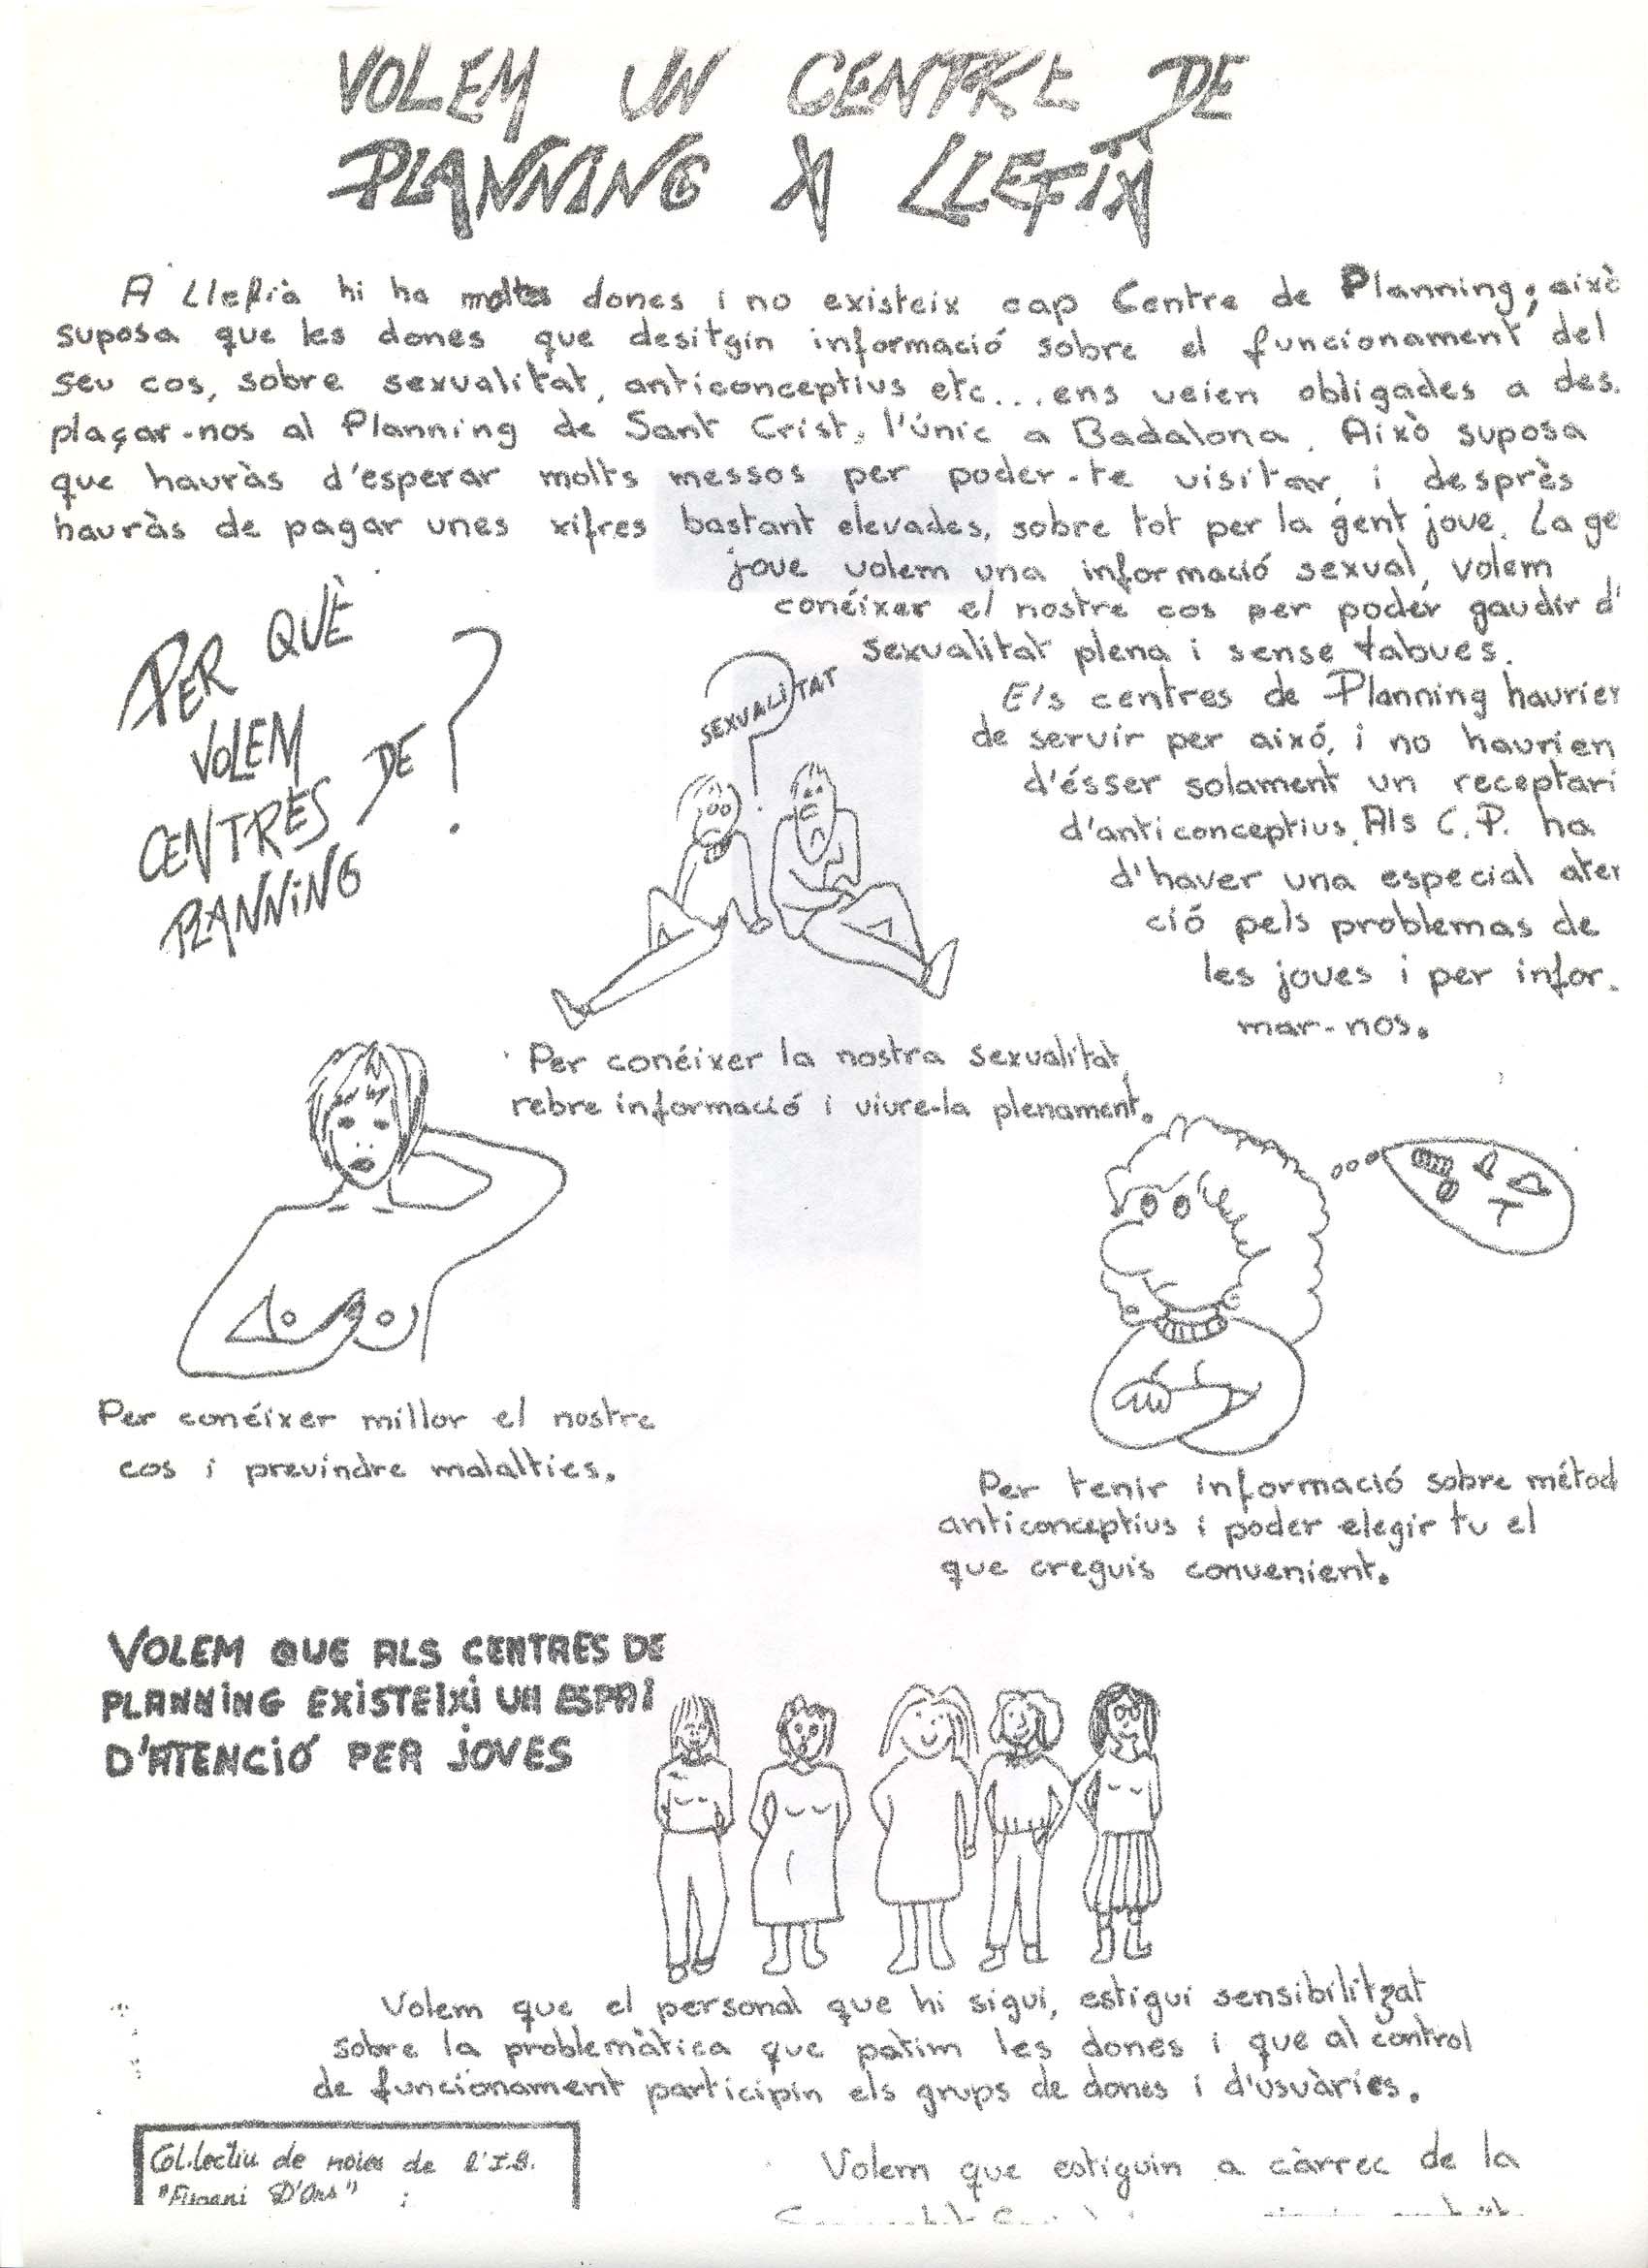 VOLEM UN CENTRE DE
PLANNING A LLEFIÀ
A Llefià hi ha moltes dones i no existeix cap Centre de Planning; això
suposa que les dones que desitgin informació sobre el funcionament del
seu cos, sobre sexualitat, anticonceptius etc... ens veien obligades a des.
plaçar-nos al Planning de Sant Crist, l'únic a Badalona. Això suposa
que hauràs d'esperar molts messos per poder-te visitar, i desprès
hauràs de pagar unes xifres bastant elevades, sobre tot per la gent jove. La ge
jove volem una informació sexual, volem
conéixer el nostre cos per poder gaudir d'
sexualitat plena i sense tabues.
Els centres de Planning haurien
de servir per aixó, i no haurien
d'ésser solament un receptari
d'anticonceptius. Als C.P. ha
d'haver una especial aten
ció pels problemas de
les joves i per infor.
mar-nos.
PER QUÈ
VOLEM
CENTRES DE
PLANNING ?
SEXUALITAT
Per conéixer la nostra sexualitat,
rebre informació i viure-la plenament.
Per conéixer millor el nostre
cos i previndre malalties.
Per tenir informació sobre métod
anticonceptius i poder elegir tu el
que creguis convenient.
VOLEM QUE ALS CENTRES DE
PLANNING EXISTEIXI UN ESPAI
D'ATENCIÓ PER JOVES
Volem que el personal que hi sigui, estigui sensibilitzat
sobre la problemàtica que patim les dones i que al control
de funcionament participin els grups de dones i d'usuàries.
Col.lectiu de noies de l'I.B.
"Eugeni D'Ors" i
Volem que estiguin a càrrec de la